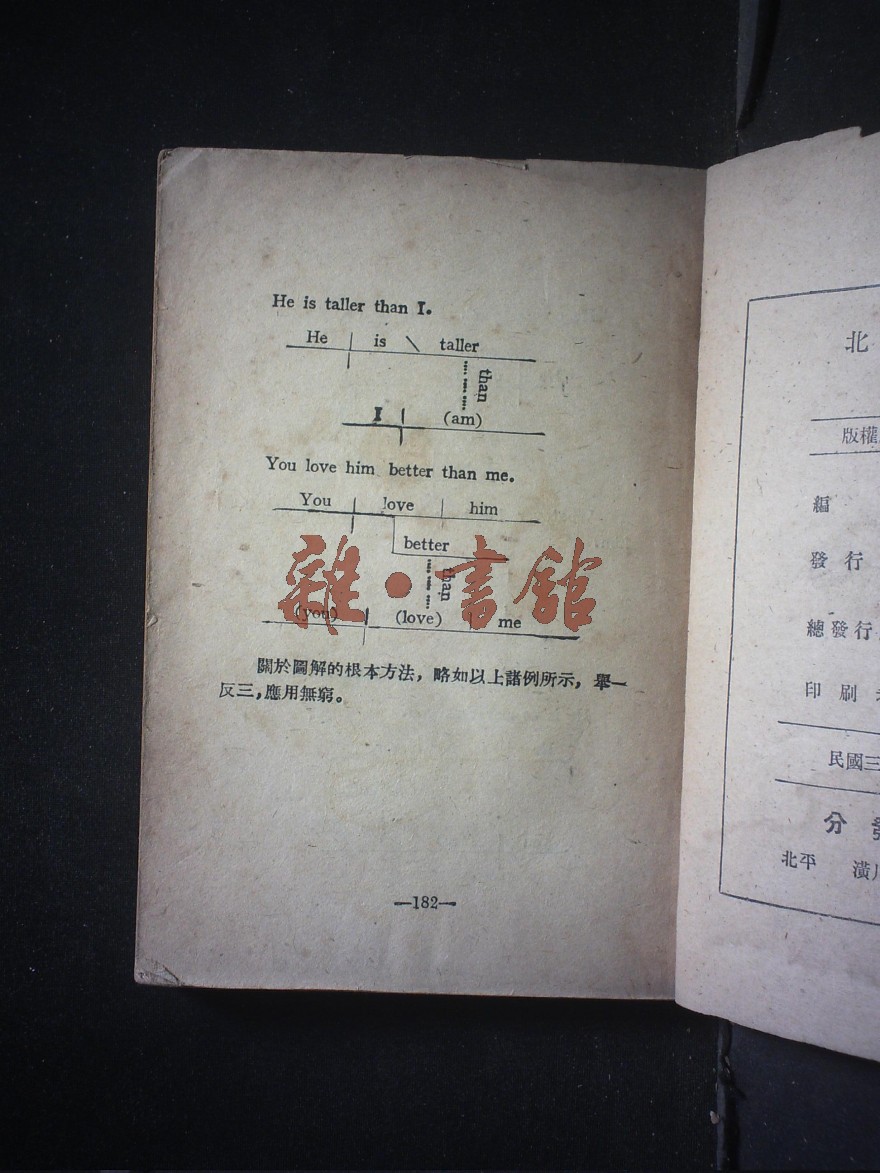 He is taller than I.
He is \ taller
than
I (am)
You love him better than me.
You love him
better
than
(you) (love) me
關於圖解的根本方法，略如以上諸例所示，舉一
反三，應用無窮。
—182—
雜·書館
北
版權
編
發行
總發行
印刷
民國三
分發
北平 潢川